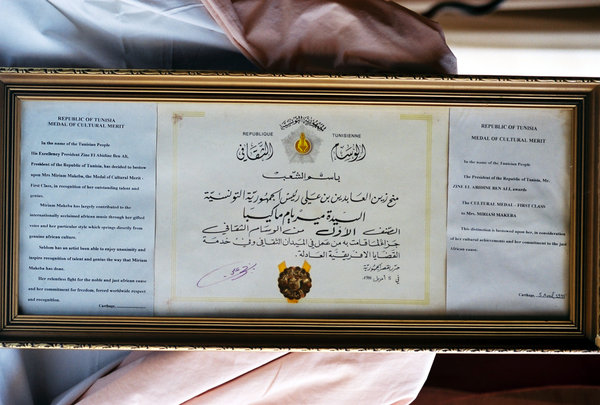 REPUBLIC OF TUNISIA
MEDAL OF CULTURAL MERIT
In the name of the Tunisian People
His Excellency President Zine El Abidine Ben Ali,
President of the Republic of Tunisia, has decided to bestow
upon Mrs Miriam Makeba, the Medal of Cultural Merit -
First Class, in recognition of her outstanding talent and
genius.
Miriam Makeba has largely contributed to the
internationally acclaimed african music through her gifted
voice and her particular style which springs directly from
genuine african culture.
Seldom has an artist been able to enjoy unanimity and
inspire recognition of talent and genius the way that Miriam
Makeba has done.
Her relentless fight for the noble and just african cause
and her commitment for freedom, forced worldwide respect
and recognition.
Carthage,
الجمهورية التونسية
REPUBLIQUE TUNISIENNE
الوسام الثقافي
باسم الشعب
منح زين العابدين بن علي رئيس الجمهورية التونسية
السيدة ميريام ماكيبا
الصنف الأول من الوسام الثقافي
جزاء لما قامت به من عمل في الميدان الثقافي وفي خدمة
القضايا الافريقية العادلة.
حرر بقصر الجمهورية
في 5 أفريل
REPUBLIC OF TUNISIA
MEDAL OF CULTURAL MERIT
In the name of the Tunisian People
The President of the Republic of Tunisia, Mr.
ZINE EL ABIDINE BEN ALI, awards
THE CULTURAL MEDAL - FIRST CLASS
to Mrs MIRIAM MAKEBA
This distinction is bestowed upon her, in consideration
of her cultural achievements and her commitment to the just
African cause.
Carthage, 5 April